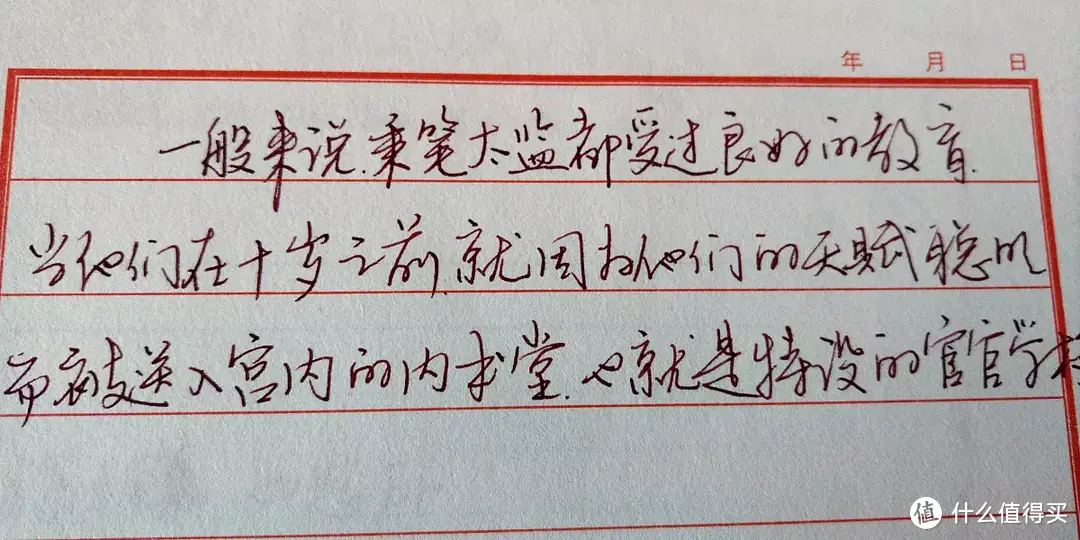 年 月 日
一般来说.秉笔太监都受过良好的教育.
当他们在十岁之前.就因为他们的天赋聪明
而被送入宫内的内书堂.也就是特设的宦官学校
值 什么值得买